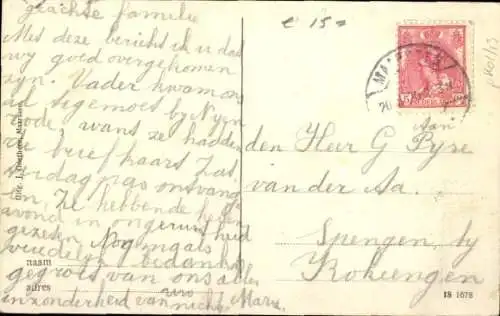 geachte familie
Met deze bericht ik u dat
wy goed overgekomen
zyn. Vader kwam ons
al tegemoet by Nyen
rode, want ze hadden
de briefkaart Zat
terdag pas ontvang
en. Ze hebben de heelen
avond in ongerustheid
gezeten. Nogmaals
vriendelyk bedankt
gegroet van ons allen
inzonderheid van uw
nicht Marie
naam
adres
Uitg. J. Maarssen
€ 15=
Aan
den Heer G Pyse
van der Aa.
Spengen, by
Kokeengen
IS 1678